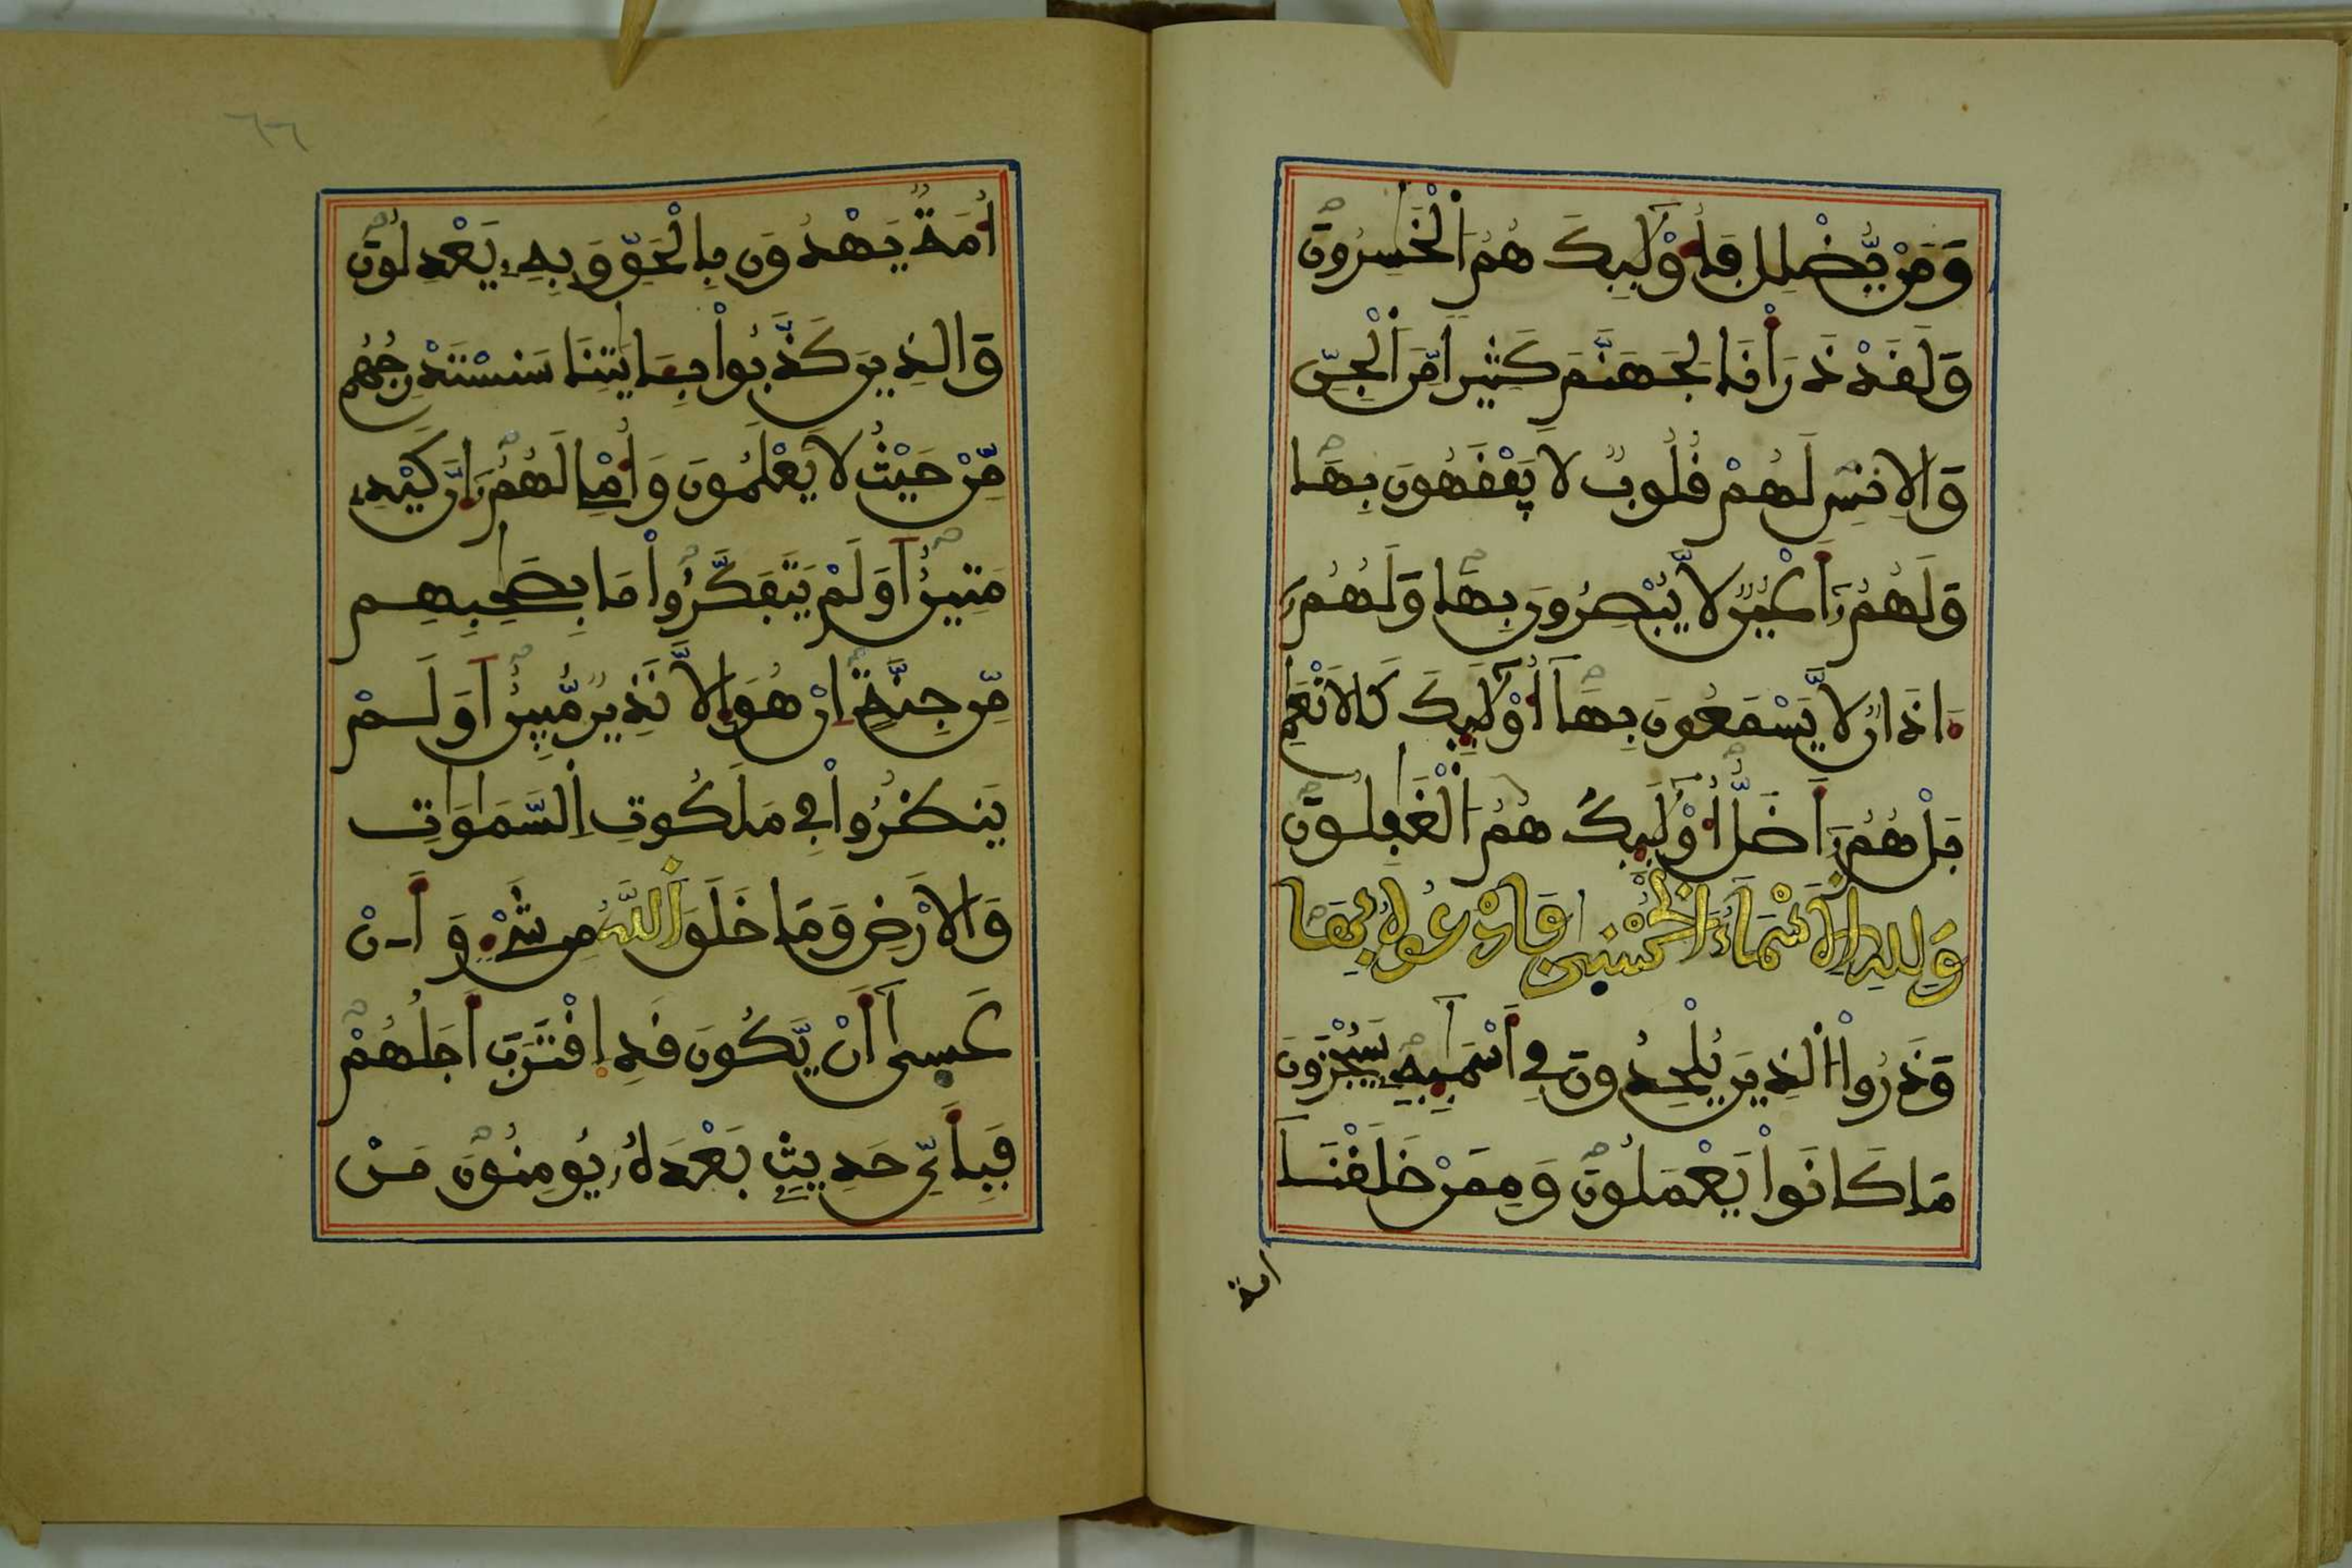 وَمَنْ يُّضْلِلْ فَأُوْلَٰٓئِكَ هُمُ اُ۬لْخَٰسِرُونَ
وَلَقَدْ ذَرَأْنَا لِجَهَنَّمَ كَثِيراٗ مِّنَ اَ۬لْجِنِّ
وَالِانسِ لَهُمْ قُلُوبٞ لَّا يَفْقَهُونَ بِهَا
وَلَهُمُۥٓ أَعْيُنٞ لَّا يُبْصِرُونَ بِهَا وَلَهُمُۥٓ
ءَاذَانٞ لَّا يَسْمَعُونَ بِهَآ أُوْلَٰٓئِكَ كَالَانْعَٰمِ
بَلْ هُمُۥٓ أَضَلُّ أُوْلَٰٓئِكَ هُمُ اُ۬لْغَٰفِلُونَ
وَلِلهِ اِ۬لَاسْمَآءُ اُ۬لْحُسْنَىٰ فَادْعُوهُ بِهَا
وَذَرُواْ اُ۬لذِينَ يُلْحِدُونَ فِےٓ أَسْمَٰٓئِهِۦ سَيُجْزَوْنَ
مَا كَانُواْ يَعْمَلُونَ وَمِمَّنْ خَلَقْنَآ
امة
٦٦
أُمَّةٞ يَهْدُونَ بِالْحَقِّ وَبِهِۦ يَعْدِلُونَ
وَالذِينَ كَذَّبُواْ بِـَٔايَٰتِنَا سَنَسْتَدْرِجُهُم
مِّنْ حَيْثُ لَا يَعْلَمُونَ وَأُمْلِے لَهُمُۥٓ إِنَّ كَيْدِے
مَتِينٌ اَوَلَمْ يَتَفَكَّرُواْ مَا بِصَٰحِبِهِم
مِّن جِنَّةٍ اِنْ هُوَ إِلَّا نَذِيرٞ مُّبِينٌ اَوَلَمْ
يَنظُرُواْ فِے مَلَكُوتِ اِ۬لسَّمَٰوَٰتِ
وَالَارْضِ وَمَا خَلَقَ اَ۬للَّهُ مِن شَےْءٖ وَأَنْ
عَسَىٰٓ أَنْ يَّكُونَ قَدِ اِ۪قْتَرَبَ أَجَلُهُمْ
فَبِأَيِّ حَدِيثِۢ بَعْدَهُۥ يُومِنُونَ مَنْ